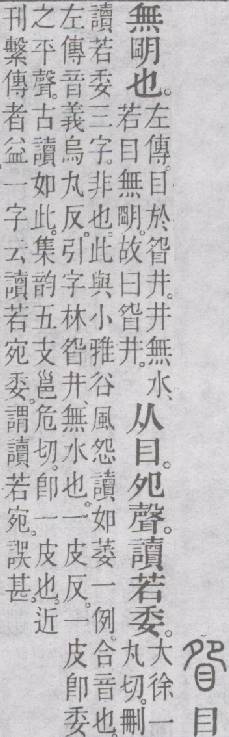 眢目
無朙也。左傳。目於眢井。井無水、若目無朙。故曰眢井。从目。夗聲。讀若委。大徐一丸切。刪
讀若委三字。非也。此與小雅谷風怨讀如萎一例。合音也。
左傳音義烏丸反。引字林眢井、無水也。一皮反。一皮卽委
之平聲。古讀如此。集韵五支邕危切。卽一皮也。近
刊繫傳者益一字云讀若宛委。謂讀若宛。誤甚。